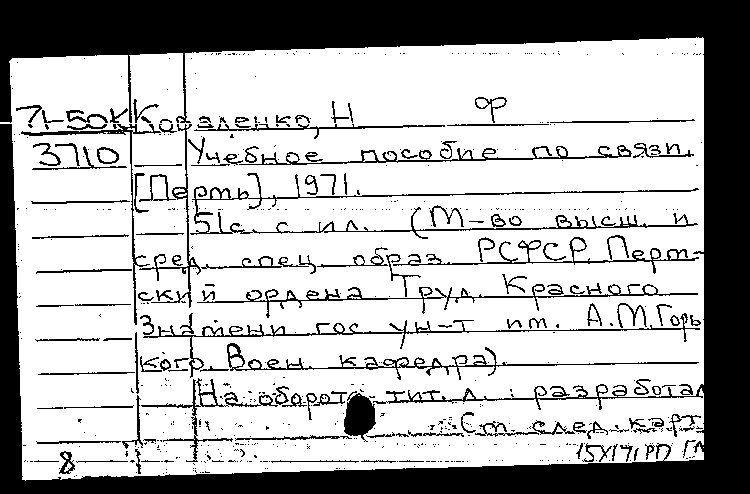 71-50К Коваленко, Н ор
3710 Учебное пособие по связи.
[Пермь], 1971.
51с. с ил. (М-во высш. и
сред. спец. образ. РСФСР. Перм-
ский ордена Труд. Красного
Знамени гос. ун-т им. А.М.Горь
кого. Воен. кафедра).
На обороте тит. л.: разработал
Ст. след. карт.
8